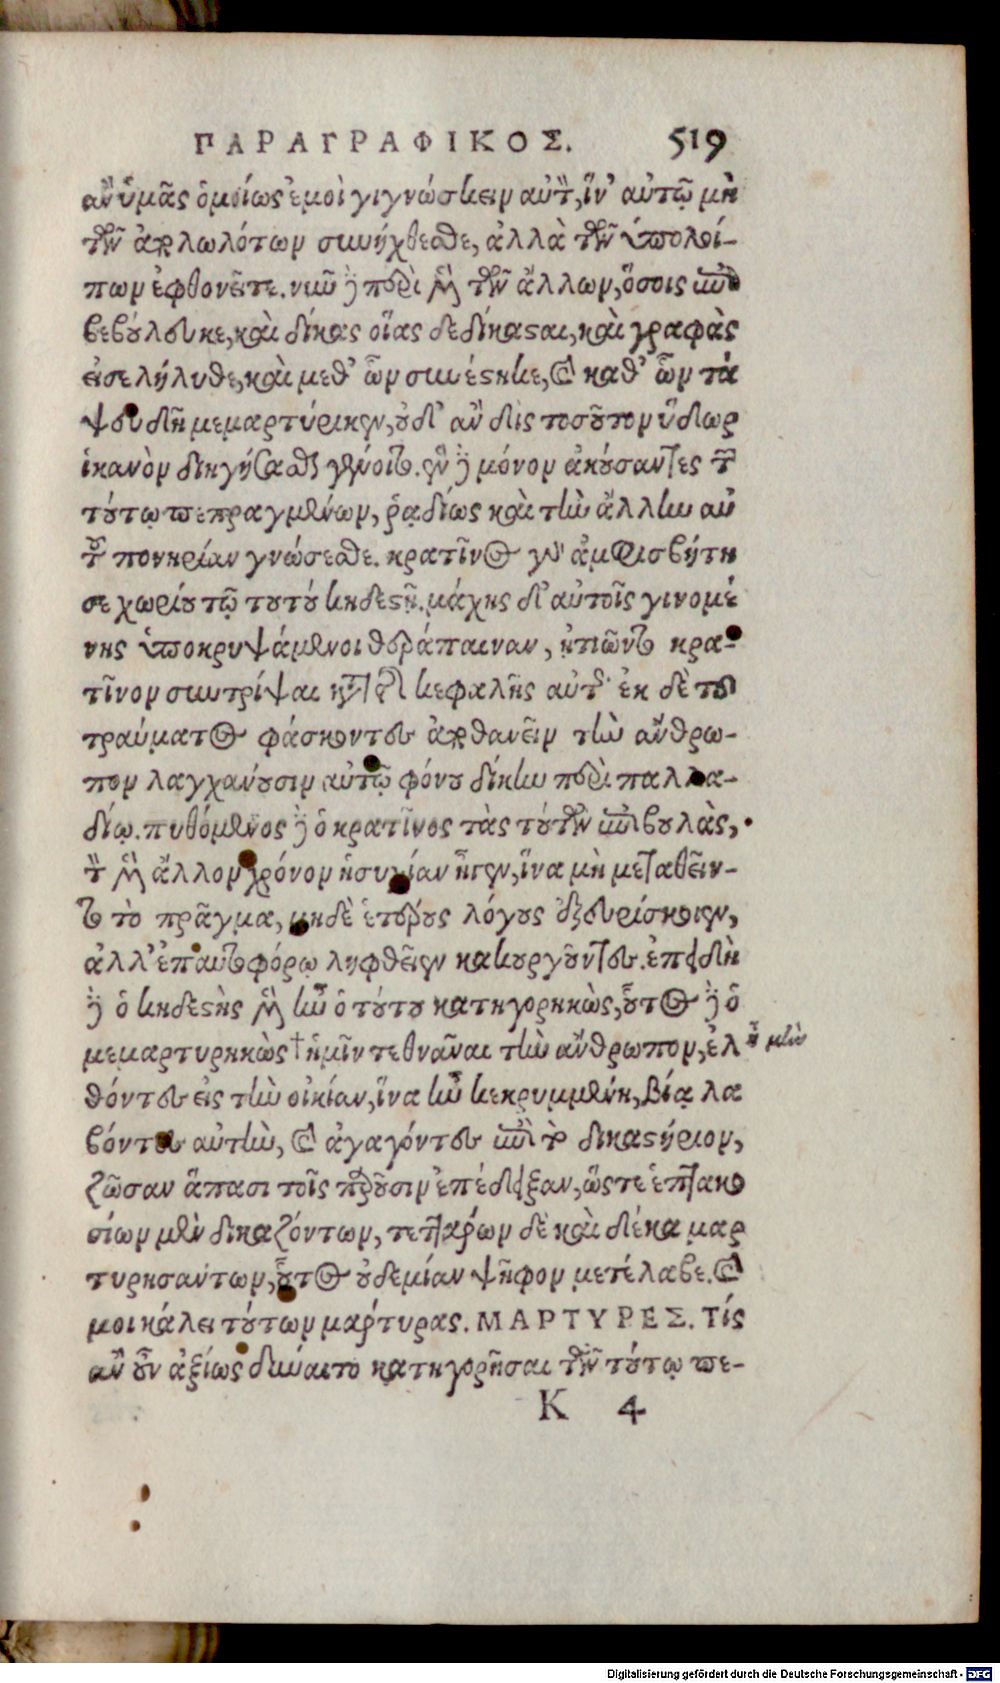 ΠΑΡΑΓΡΑΦΙΚΟΣ. 519
ἂν ὑμᾶς ὁμοίως ἐμοὶ γιγνώσκειν αὐτὸν, ἵν' αὐτῷ μὴ
τῶν ἀπολωλότων συνήχθεσθε, ἀλλὰ τῶν ὑπολοί-
πων ἐφθονεῖτε. νῦν δὲ περὶ μὲν τῶν ἄλλων, ὅσοις ἐπι
βεβούλευκε, καὶ δίκας οἵας δεδίκασαι, καὶ γραφὰς
εἰσελήλυθε, καὶ μεθ' ὧν συνέστηκε, καὶ καθ' ὧν τὰ
ψευδῆ μεμαρτύρηκεν, οὐδ' ἂν δὶς τοσοῦτον ὕδωρ
ἱκανὸν διηγήσασθαι γένοιτο. ἓν δὲ μόνον ἀκούσαντες τῶν
τούτῳ πεπραγμένων, ῥᾳδίως καὶ τὴν ἄλλην αὐ
τοῦ πονηρίαν γνώσεσθε. κρατῖνος γὰρ ἀμφισβήτη
σε χωρίου τῷ τούτου κηδεστῇ. μάχης δ' αὐτοῖς γινομέ
νης ὑποκρυψάμενοι θεράπαιναν, ᾐτιῶντο κρα-
τῖνον συντρίψαι κατὰ τῆς κεφαλῆς αὐτῆς· ἐκ δὲ τοῦ
τραύματος φάσκοντες ἀποθανεῖν τὴν ἄνθρω-
πον λαγχάνουσιν αὐτῷ φόνου δίκην περὶ παλλα-
δίῳ. πυθόμενος δὲ ὁ κρατῖνος τὰς τούτων ἐπιβουλὰς,
τὸν μὲν ἄλλον χρόνον ἡσυχίαν ἦγεν, ἵνα μὴ μεταθεῖν-
το τὸ πρᾶγμα, μηδὲ ἑτέρους λόγους ἐξευρίσκοιεν,
ἀλλ' ἐπαυτοφόρῳ ληφθεῖεν κακουργοῦντες. ἐπειδὴ
δὲ ὁ κηδεστὴς μὲν ἦν ὁ τούτου κατηγορηκὼς, οὗτος δὲ ὁ
μεμαρτυρηκὼς †ἡμῖν τεθνᾶναι τὴν ἄνθρωπον, ἐλ
ἦ μὴν
θόντες εἰς τὴν οἰκίαν, ἵνα ἦν κεκρυμμένη, βίᾳ λα
βόντες αὐτὴν, καὶ ἀγαγόντες ἐπὶ τὸ δικαστήριον,
ζῶσαν ἅπασι τοῖς παροῦσιν ἐπέδειξαν, ὥστε ἑπτακο
σίων μὲν δικαζόντων, τεττάρων δὲ καὶ δέκα μαρ
τυρησάντων, οὗτος οὐδεμίαν ψῆφον μετέλαβε. καί
μοι κάλει τούτων μάρτυρας. ΜΑΡΤΥΡΕΣ. Τίς
ἂν οὖν ἀξίως δύναιτο κατηγορῆσαι τῶν τούτῳ πε-
K 4
Digitalisierung gefördert durch die Deutsche Forschungsgemeinschaft - DFG